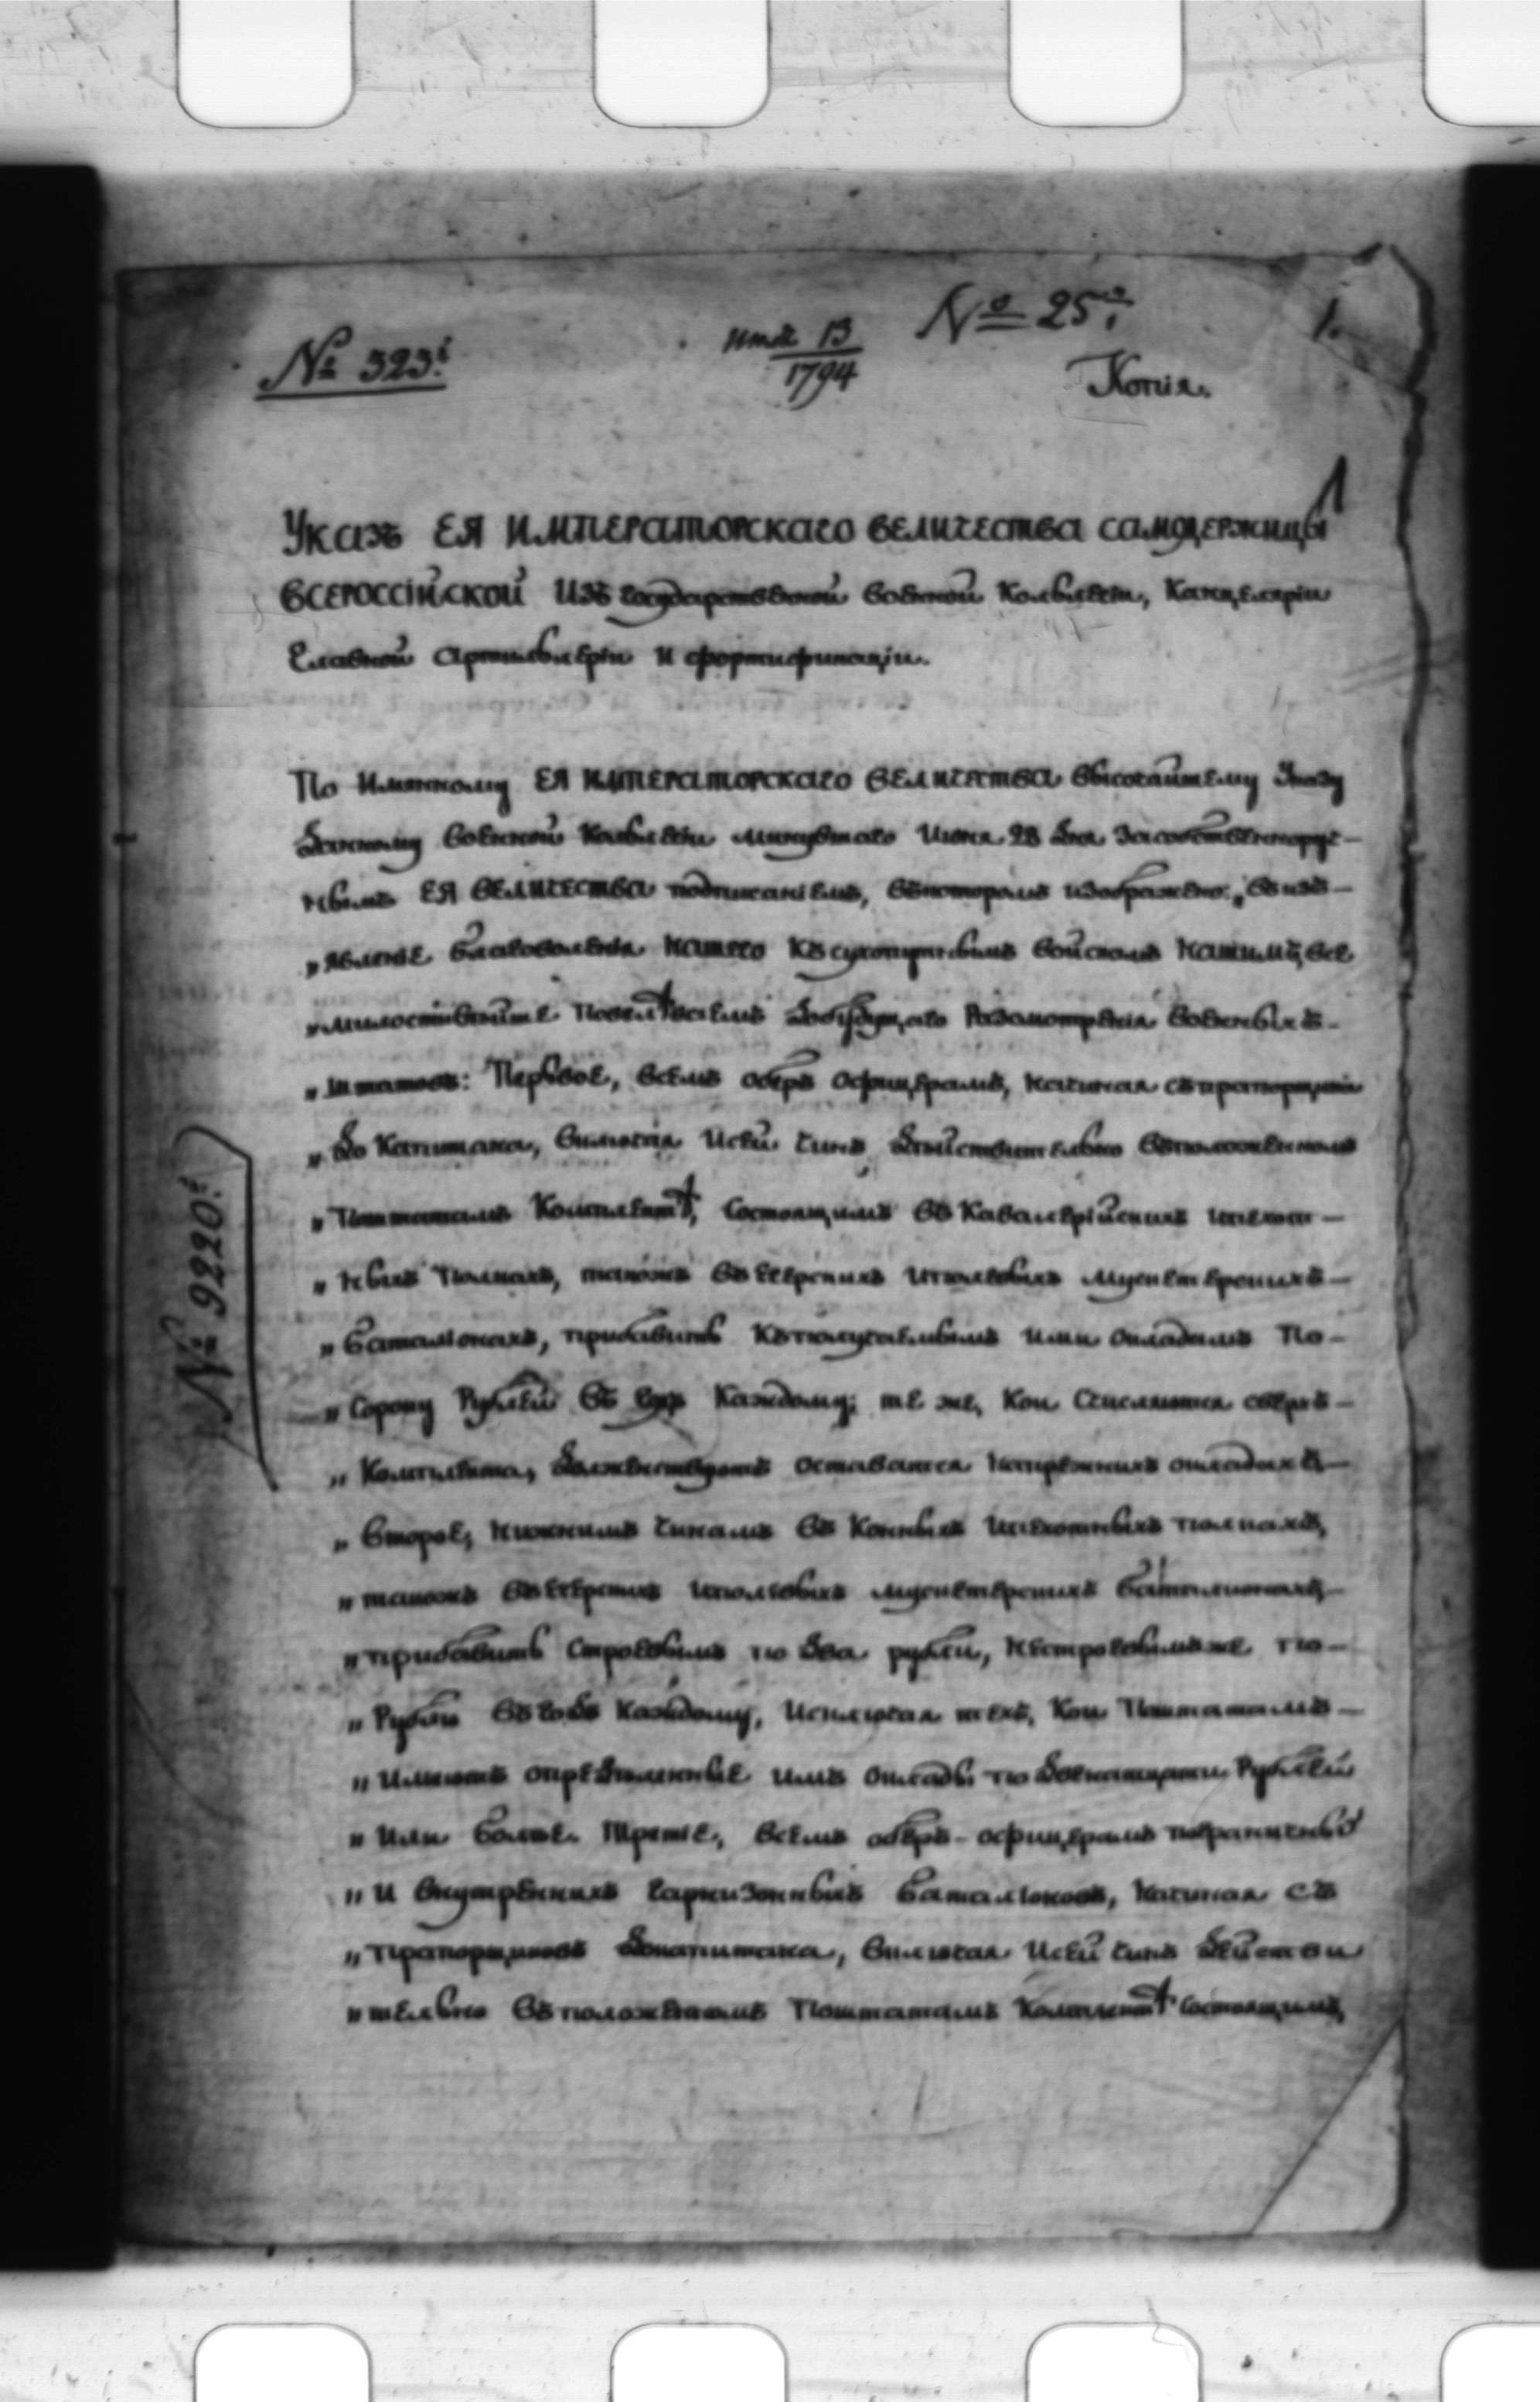 № 323.
13
1794
№ 25.
1.
Копія.
1
Указъ ЕЯ ИМПЕРАТОРСКАГО ВЕЛИЧЕСТВА САМОДЕРЖИЦЫ
ВСЕРОССІЙСКОЙ Изъ государственной военной Кольлегіи, Канцеляріи
Главной Артильлеріи и фортификаціи.
По Имянному ЕЯ ИМПЕРАТОРСКАГО ВЕЛИЧЕСТВА высочайшему Указу
данному военной Кольлегіи минувшаго Июня 28 дня Засобственноруч-
нымъ ЕЯ ВЕЛИЧЕСТВА подписаніемъ, вкоторомъ изображено: „ въ изъ-
„ явленіе благоволенія Нашего Къ сухопутнымъ войскамъ Нашимъ, все
„ милостивейше повелѣваемъ добудущаго Разсмотренія военныхъ-
„ штатовъ: Первое, всемъ оберъ офицерамъ, начиная съ прапорщика
„ до Капитана, включая И сей чинъ действительно въположенномъ
„ Поштатамъ Комплектѣ, Состоящимъ въ Кавалерійскихъ ипехот-
„ ныхъ Полкахъ, такожъ въ егерскихъ иполевыхъ мускетерскихъ-
„ баталіонахъ, прибавить Къполучаемымъ ими окладамъ По-
„ Сороку Рублей въ годъ Каждому; те же, Кои Счисляются сверхъ-
„ Комплекта, долженствуютъ оставатся Напрежнихъ окладахъ-
„ Второе, нижнимъ чинамъ въ Конныхъ ипехотныхъ полкахъ,
„ такожъ въ егерскихъ иполевыхъ мускетерскихъ баталионахъ,-
„ прибавить Строевымъ по два рубли, нестроевымъже по-
„ Рублю въ годъ каждому, Исключая техъ, Кои Поштатамъ-
„ имеютъ определенные имъ оклады по двенатцати Рублей
„ или более. Третіе, всемъ оберъ-офицерамъ пограничныхъ
„ и внутреннихъ гарнизонныхъ баталіоновъ, начиная съ
„ прапорщиковъ докапитана, включая И сей чинъ действи
„ тельно въположенномъ Поштатамъ Комплектѣ Состоящимъ,
№ 9220.